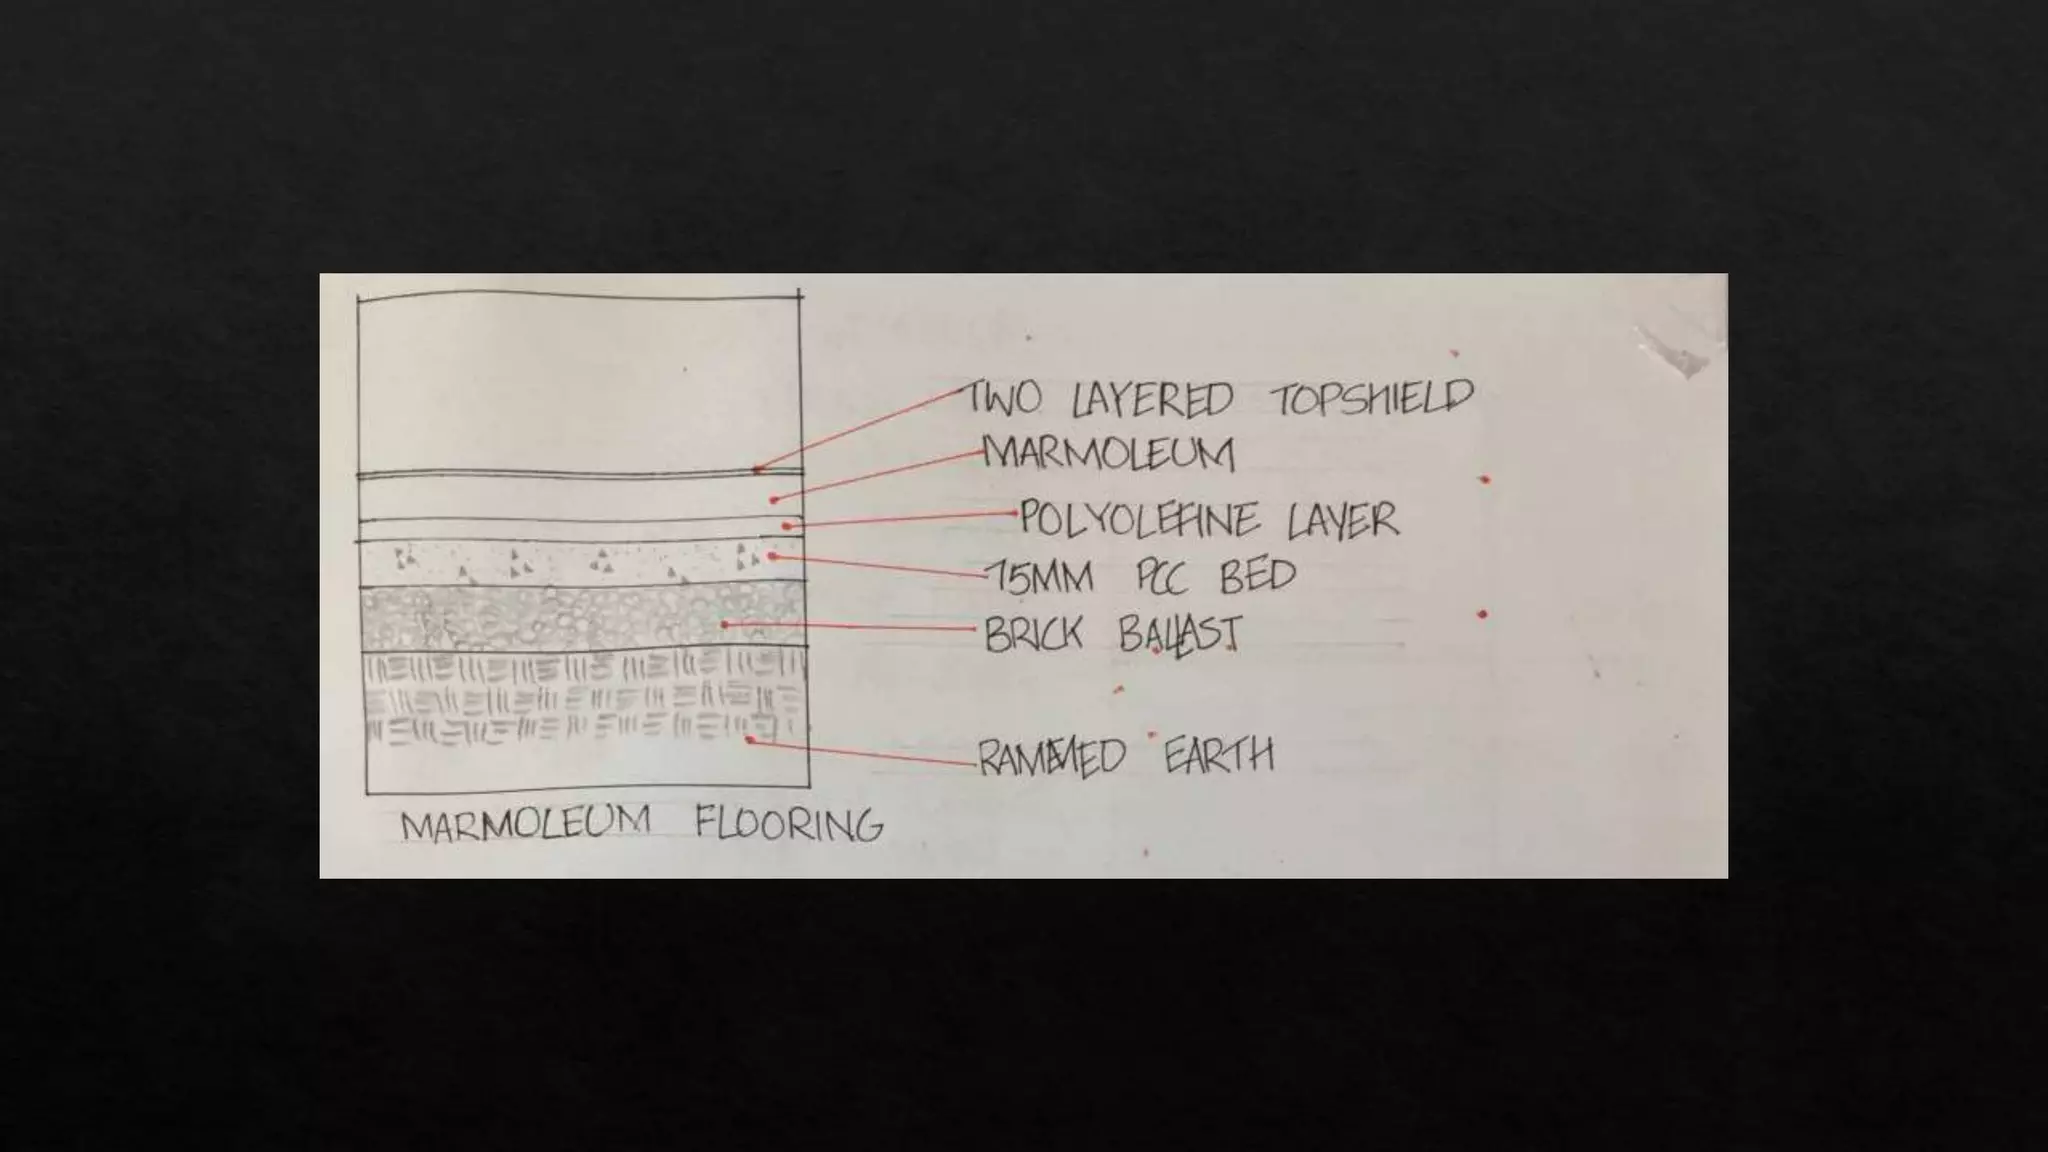 TWO LAYERED TOPSHIELD
MARMOLEUM
POLYOLEFINE LAYER
75MM PCC BED
BRICK BALLAST
RAMMED EARTH
MARMOLEUM FLOORING